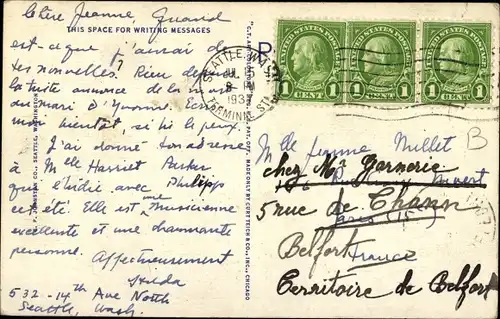 Chère Jeanne, Quand
THIS SPACE FOR WRITING MESSAGES
est-ce que j'aurai de
tes nouvelles? Rien depuis
la triste annonce de la mort
du mari d'Yvonne. Écris-
moi bientôt, si tu le peux.
J'ai donné ton adresse
à Mlle Harriet Parker
qui étudie avec Philipp
cet été. Elle est une musicienne
excellente et une charmante
personne.
Affectueusement
Hilda
532-14th Ave North
Seattle, Wash.
SEATTLE, WASH.
JUL 15
8-PM
193
TERMINAL STA.
UNITED STATES POSTAGE
1 CENT 1
UNITED STATES POSTAGE
1 CENT 1
UNITED STATES POSTAGE
1 CENT 1
B
Mlle Jeanne Millet
chez Mr Garnerie
5 rue de Chanzy
Paris
Belfort
France
Territoire de Belfort
SEATTLE, WASHINGTON
PAT. OFF. MADE ONLY BY CURT TEICH & CO., INC., CHICAGO